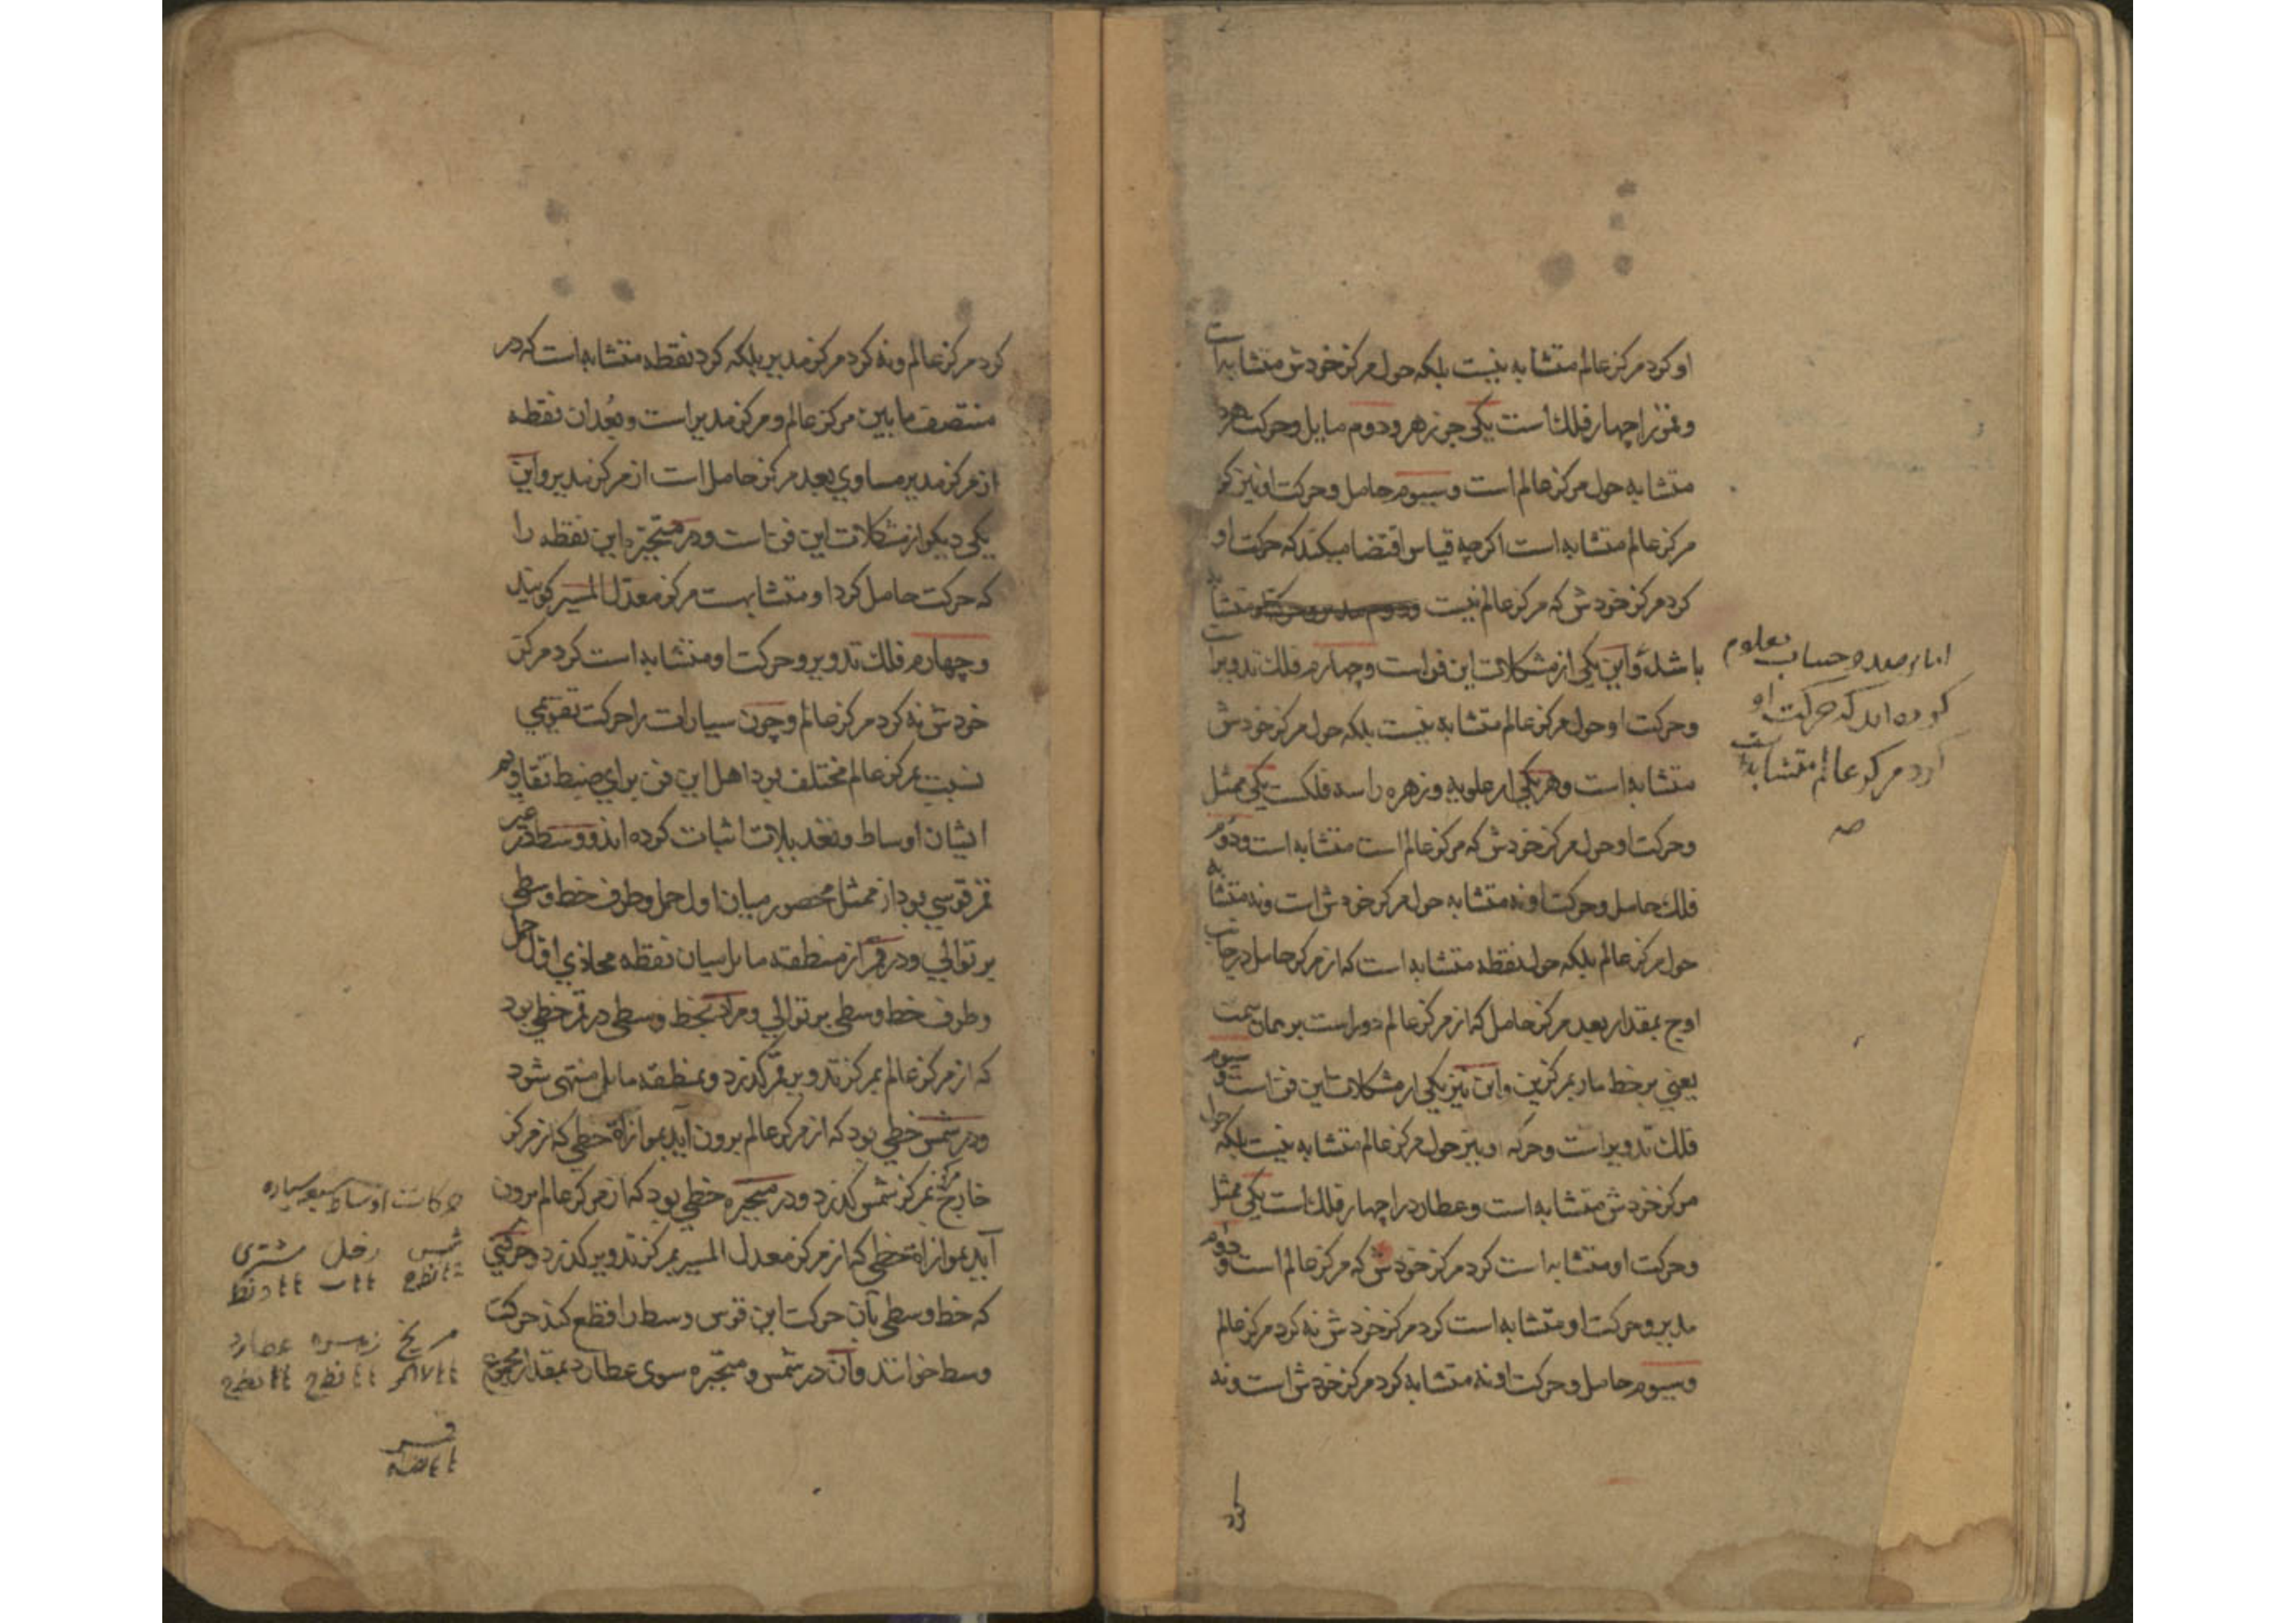 او کرد مرکز عالم متشابه نیست بلکه حول مرکز خودش متشابه است
و قمر را چهار فلك است یکی جوزهر و دوم مایل و حرکت هر دو
متشابه حول مرکز عالم است و سیوم حامل و حرکت او نیز کرد
مرکز عالم متشابه است اکرچه قیاس اقتضا میکند که حرکت او
کرد مرکز خودش که مرکز عالم نیست متشابه
باشد و این یکی از مشکلات این فن است و چهارم فلك تدویر است
و حرکت او حول مرکز عالم متشابه نیست بلکه حول مرکز خودش
متشابه است و هر یکی از علویه و زهره را سه فلکست یکی ممثل
و حرکت او حول مرکز خودش که مرکز عالم است متشابه است و دوم
فلك حامل و حرکت او نه متشابه حول مرکز خودش است و نه متشابه
حول مرکز عالم بلکه حول نقطه متشابه است که از مرکز حامل در جانب
اوج بمقدار بعد مرکز حامل که از مرکز عالم دور است بر همان سمت
یعنی بر خط مار بمرکزین و این نیز یکی از مشکلات این فن است و سیوم
فلك تدویر است و حرکه او نیز حول مرکز عالم متشابه نیست بلکه حول
مرکز خودش متشابه است و عطارد را چهار فلك است یکی ممثل
و حرکت او متشابه است کرد مرکز خودش که مرکز عالم است و دوم
مدیر و حرکت او متشابه است کرد مرکز خودش نه کرد مرکز عالم
و سیوم حامل و حرکت او نه متشابه کرد مرکز خودش است و نه
کرد
اما بر صد و حساب معلوم
کرده اند که حرکت او
کرد مرکز عالم متشابه است
صه
کرد مرکز عالم و نه کرد مرکز مدیر بلکه کرد نقطه متشابه است که در
منتصف ما بین مرکز عالم و مرکز مدیر است و بعد ان نقطه
از مرکز مدیر مساوی بعد مرکز حامل است از مرکز مدیر و این
یکی دیکر از مشکلات این فن است و در متحیره این نقطه را
که حرکت حامل کرد او متشابهست مرکز معدل المسیر کویند
و چهارم فلك تدویر و حرکت او متشابه است کرد مرکز
خودش نه کرد مرکز عالم و چون سیارات را حرکت تقویمی
نسبت بمرکز عالم مختلف بود اهل این فن برای ضبط تقاویم
ایشان اوساط و تعدیلات اثبات کرده اند و وسط در غیر
قمر قوسی بود از ممثل محصور میان اول حمل و طرف خط وسطی
بر توالی و در قمر از منطقه مایل میان نقطه محاذی اول حمل
و طرف خط وسطی بر توالی و مراد بخط وسطی در قمر خطی بود
که از مرکز عالم بمرکز تدویر قمر کذرد و بمنطقه مایل منتهی شود
و در شمس خطی بود که از مرکز عالم برون آید بموازاة خطی که از مرکز
خارج مرکز بمرکز شمس کذرد و در متحیره خطی بود که از مرکز عالم برون
آید بموازاة خطی که از مرکز معدل المسیر بمرکز تدویر کذرد و حرکتی
که خط وسطی بآن حرکت این قوس وسط را قطع کند حرکت
وسط خوانند و آن در شمس و متحیره سوی عطارد بمقدار مجموع
حرکات اوساط سبعه سیاره
شمس زحل مشتری
مریخ زهره عطارد
قمر